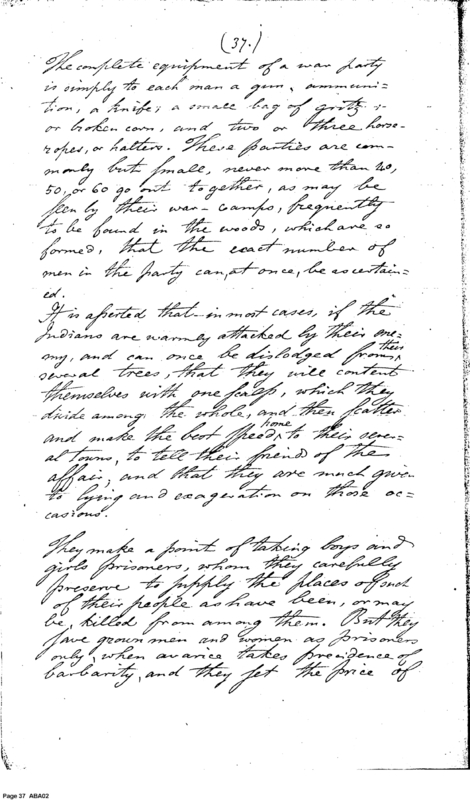 (37.)
The complete equipment of a war party
is simply to each man a gun, ammuni=
tion, a knife, a small bag of grits
or broken corn, and two or three horse-
ropes, or halters. These parties are com-
monly but small, never more than 40,
50, or 60 go out together, as may be
seen by their war-camps, frequently
to be found in the woods, which are so
formed, that the exact number of
men in the party can, at once, be ascertain=
ed.
It is asserted that in most cases, if the
Indians are warmly attacked by their ene=
my, and can once be dislodged from their
several trees, that they will content
themselves with one scalp, which they
divide among the whole, and then scatter
and make the best speed home to their seve=
ral towns, to tell their friends of the
affair; and that they are much given
to lying and exageration on those oc=
casions.
They make a point of taking boys and
girls prisoners, whom they carefully
preserve to supply the places of such
of their people as have been, or may
be, killed from among them. But they
save grown men and women as prisoners
only, when avarice takes presidence of
barbarity, and they set the price of
Page 37 ABA02